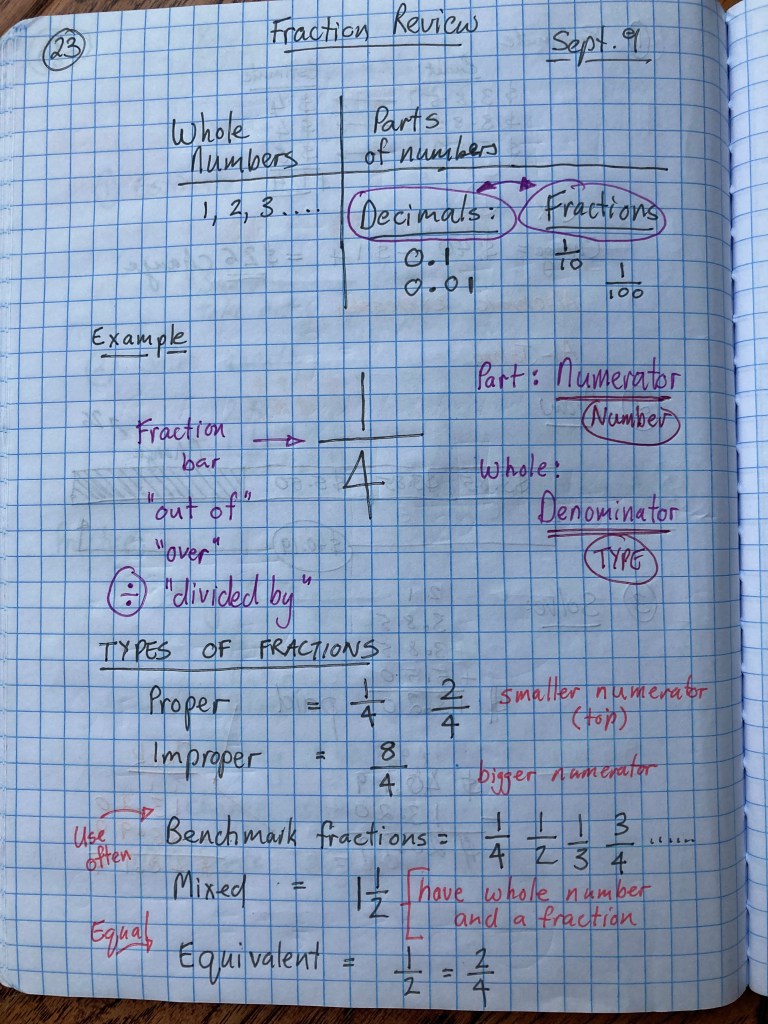 23
Fraction Review
Sept. 9
Whole Numbers
Parts of numbers
1, 2, 3 ....
Decimals:
Fractions
0.1
1/10
0.01
1/100
Example
Fraction bar → 1/4
Part: Numerator
Number
Whole:
Denominator
TYPE
"out of"
"over"
÷ "divided by"
TYPES OF FRACTIONS
Proper = 1/4 2/4 smaller numerator (top)
Improper = 8/4 bigger numerator
Use often
Benchmark fractions = 1/4 1/2 1/3 3/4 ......
Mixed = 1 1/2 have whole number and a fraction
Equal
Equivalent = 1/2 = 2/4